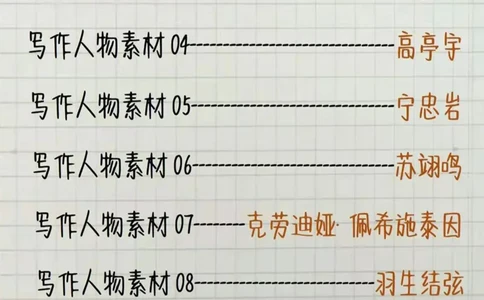 写作人物素材04------------------------------高亭宇
写作人物素材05------------------------------宁忠岩
写作人物素材06------------------------------苏翊鸣
写作人物素材07-------克劳迪娅·佩希施泰因
写作人物素材08--------------------------羽生结弦